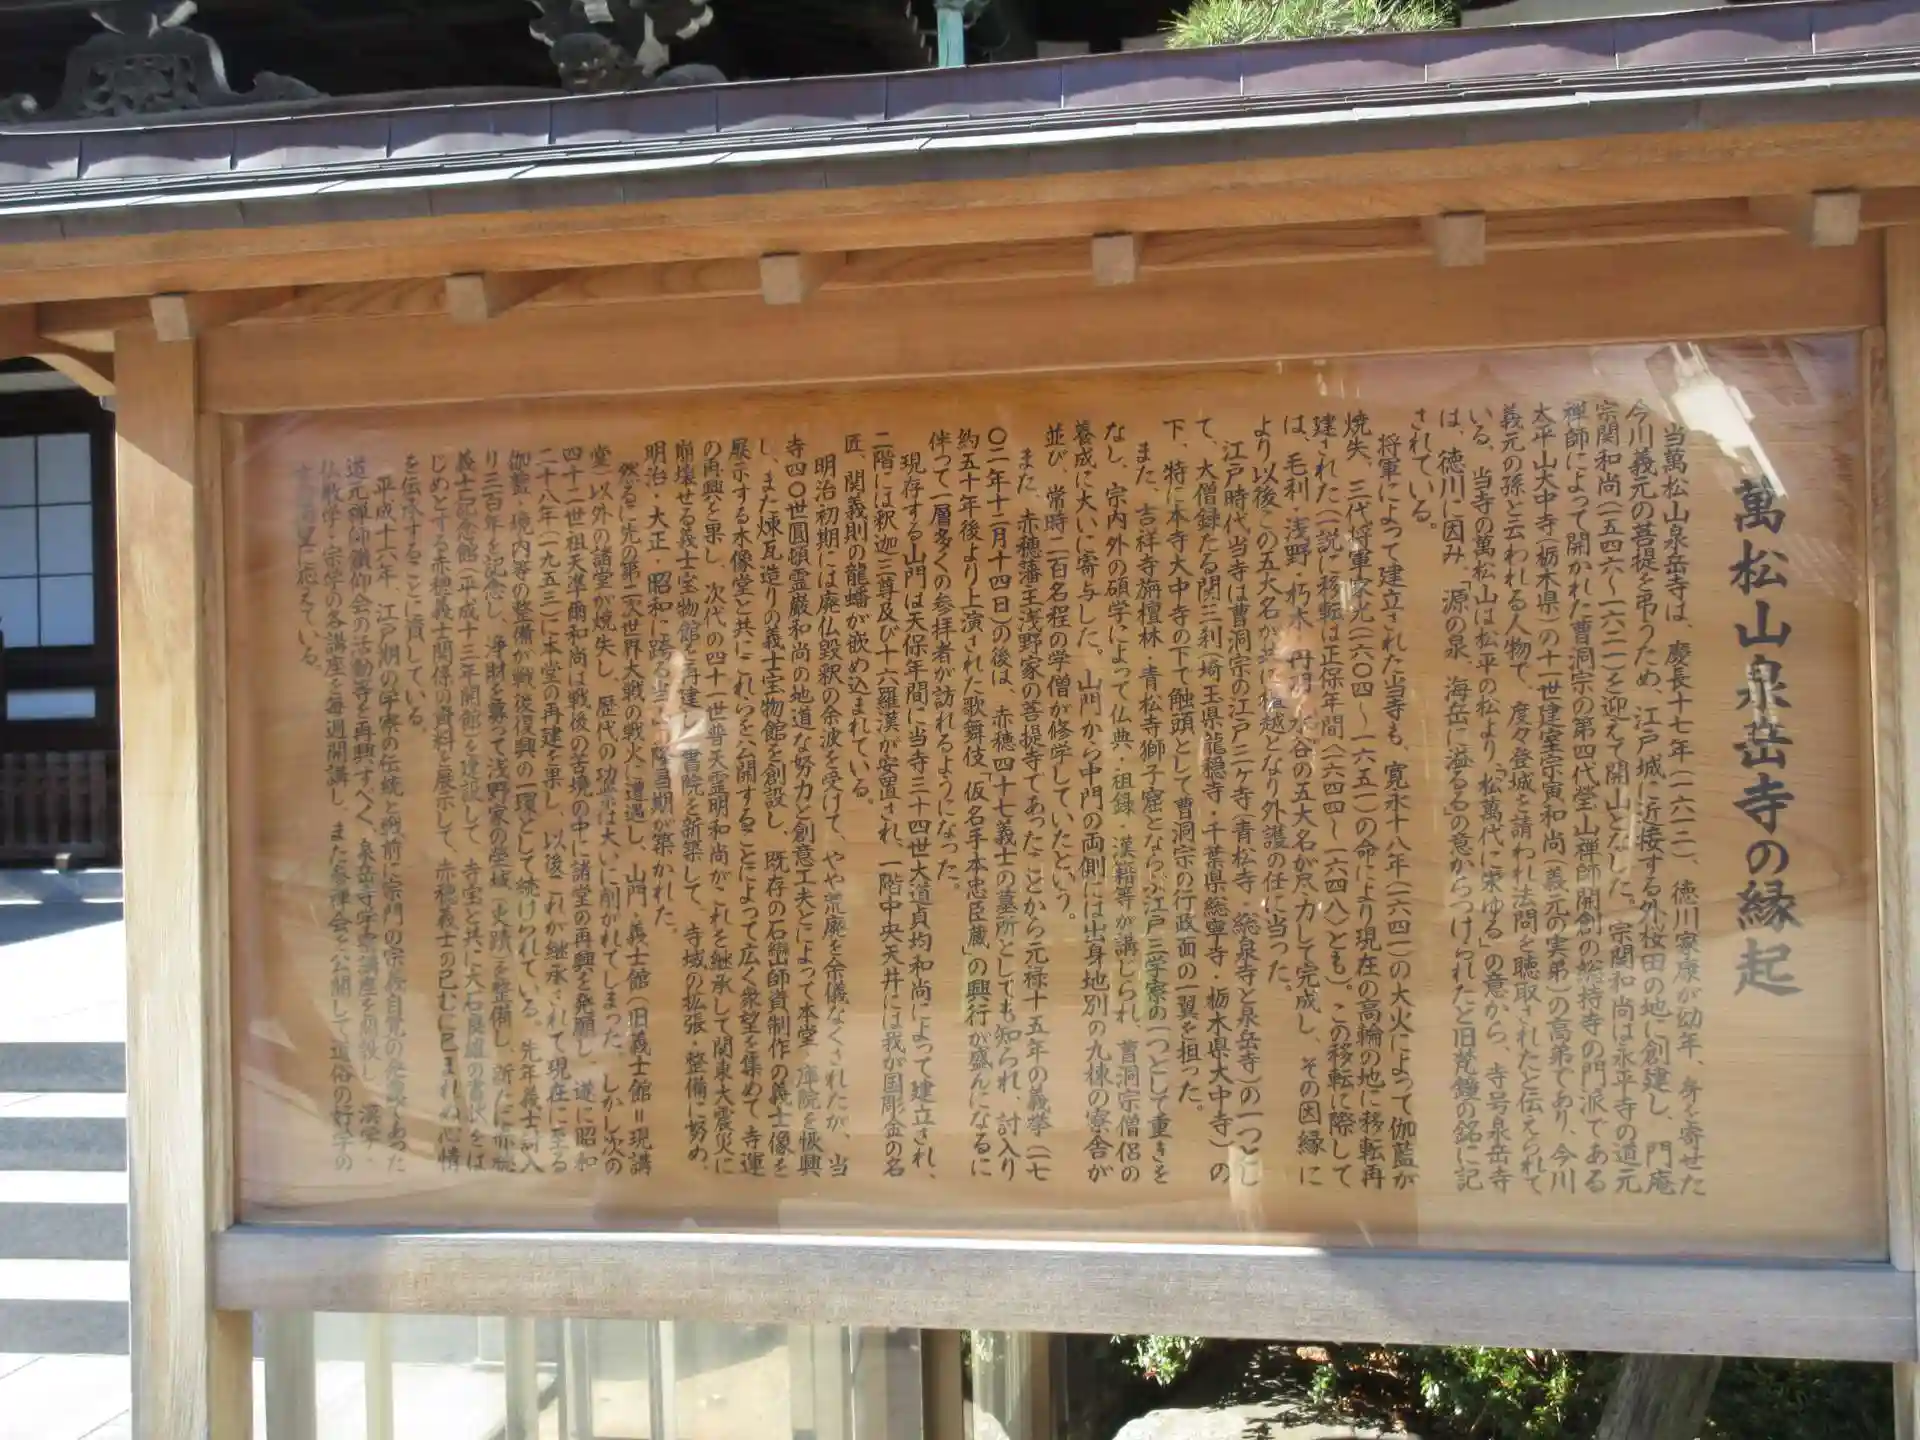 萬松山泉岳寺の縁起
当萬松山泉岳寺は、慶長十七年(一六一二)、徳川家康が幼年、身を寄せた
今川義元の菩提を弔うため、江戸城に近接する外桜田の地に創建し、門庵
宗関和尚(一五四六〜一六二一)を迎えて開山となした。宗関和尚は永平寺の道元
禅師によって開かれた曹洞宗の第四代瑩山禅師開創の総持寺の門派である
太平山大中寺(栃木県)の十一世建室宗寅和尚(義元の実弟)の高弟であり、今川
義元の孫と云われる人物で、度々登城を請われ法問を聴取されたと伝えられて
いる。当寺の萬松山は松平の松より、「松萬代に栄ゆる」の意から、寺号泉岳寺
は、徳川に因み、「源の泉、海岳に溢るる」の意からつけられたと旧梵鐘の銘に記
されている。
将軍によって建立された当寺も、寛永十八年(一六四一)の大火によって伽藍が
焼失、三代将軍家光(一六〇四〜一六五一)の命により現在の高輪の地に移転再
建された(一説に移転は正保年間(一六四四〜一六四八)とも)。この移転に際して
は、毛利・浅野・朽木・丹羽・水谷の五大名が尽力して完成し、その因縁に
より以後この五大名が共に檀越となり外護の任に当った。
江戸時代当寺は曹洞宗の江戸三ケ寺(青松寺・総泉寺と泉岳寺)の一つとし
て、大僧録たる関三刹(埼玉県龍穏寺・千葉県総寧寺・栃木県大中寺)の
下、特に本寺大中寺の下で触頭として曹洞宗の行政面の一翼を担った。
また、吉祥寺旃檀林、青松寺獅子窟とならぶ江戸三学寮の一つとして重きを
なし、宗内外の碩学によって仏典・祖録・漢籍等が講じられ、曹洞宗僧侶の
養成に大いに寄与した。山門から中門の両側には出身地別の九棟の寮舎が
並び、常時二百名程の学僧が修学していたという。
また、赤穂藩主浅野家の菩提寺であったことから元禄十五年の義挙(一七
〇二年十二月十四日)の後は、赤穂四十七義士の墓所としても知られ、討入り
約五十年後より上演された歌舞伎「仮名手本忠臣蔵」の興行が盛んになるに
伴って一層多くの参拝者が訪れるようになった。
現存する山門は天保年間に当寺三十四世大道貞均和尚によって建立され、
二階には釈迦三尊及び十六羅漢が安置され、一階中央天井には我が国彫金の名
匠、関義則の龍蟠が嵌め込まれている。
明治初期には廃仏毀釈の余波を受けて、やや荒廃を余儀なくされたが、当
寺四〇世圓頓霊巌和尚の地道な努力と創意工夫とによって本堂・庫院を恢興
し、また煉瓦造りの義士宝物館を創設し、既存の石鑾師資制作の義士像を
展示する木像堂と共にこれらを公開することによって広く衆望を集めて寺運
の再興を果し、次代の四十一世普天霊明和尚がこれを継承して関東大震災に
崩壊せる義士宝物館を再建 書院を新築して、寺域の拡張・整備に努め、
明治・大正・昭和に跨る当 隆昌期が築かれた。
然るに先の第二次世界大戦の戦火に遭遇し、山門・義士館(旧義士館=現講
堂)以外の諸堂が焼失し、歴代の功業は大いに削がれてしまった。しかし次の
四十二世祖天準爾和尚は戦後の苦境の中に諸堂の再興を発願し、遂に昭和
二十八年(一九五三)に本堂の再建を果し、以後これが継承されて現在に至る
伽藍・境内等の整備が戦後復興の一環として続けられている。先年義士討入
り三百年を記念し、浄財を募って浅野家の塋域(史蹟)を整備し、新たに赤穂
義士記念館(平成十三年開館)を建設して、寺宝と共に大石良雄の書状をは
じめとする赤穂義士関係の資料を展示して、赤穂義士の已むに已まれぬ心情
を伝承することに資している。
平成十六年、江戸期の学寮の伝統と戦前に宗門の宗義自覚の発露であった
道元禅師讃仰会の活動等を再興すべく、泉岳寺学寮講座を創設し、漢学・
仏教学・宗学の各講座を毎週開講し、また参禅会を公開して道俗の好学の
士の希望に応えている。